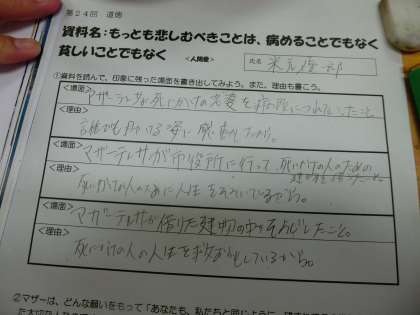 第24回 道徳
資料名：もっとも悲しむべきことは、病めることでもなく
貧しいことでもなく
＜人間愛＞
氏名
①資料を読んで、印象に残った場面を書き出してみよう。また、理由も書こう。
＜場面＞
マザーテレサが死にかけの老婆を病院につれていったこと
＜理由＞
誰でも助ける姿に感動したから。
＜場面＞
マザーテレサが市役所に行って、死にかけの人のための
＜理由＞
死にかけの人のために人生をささげているから。
＜場面＞
マザーテレサが借りた建物の中をそうじしたこと。
＜理由＞
死にかけの人の人生を救おうとしているから。
②マザーは、どんな願いをもって「あなたも、私たちと同じように、